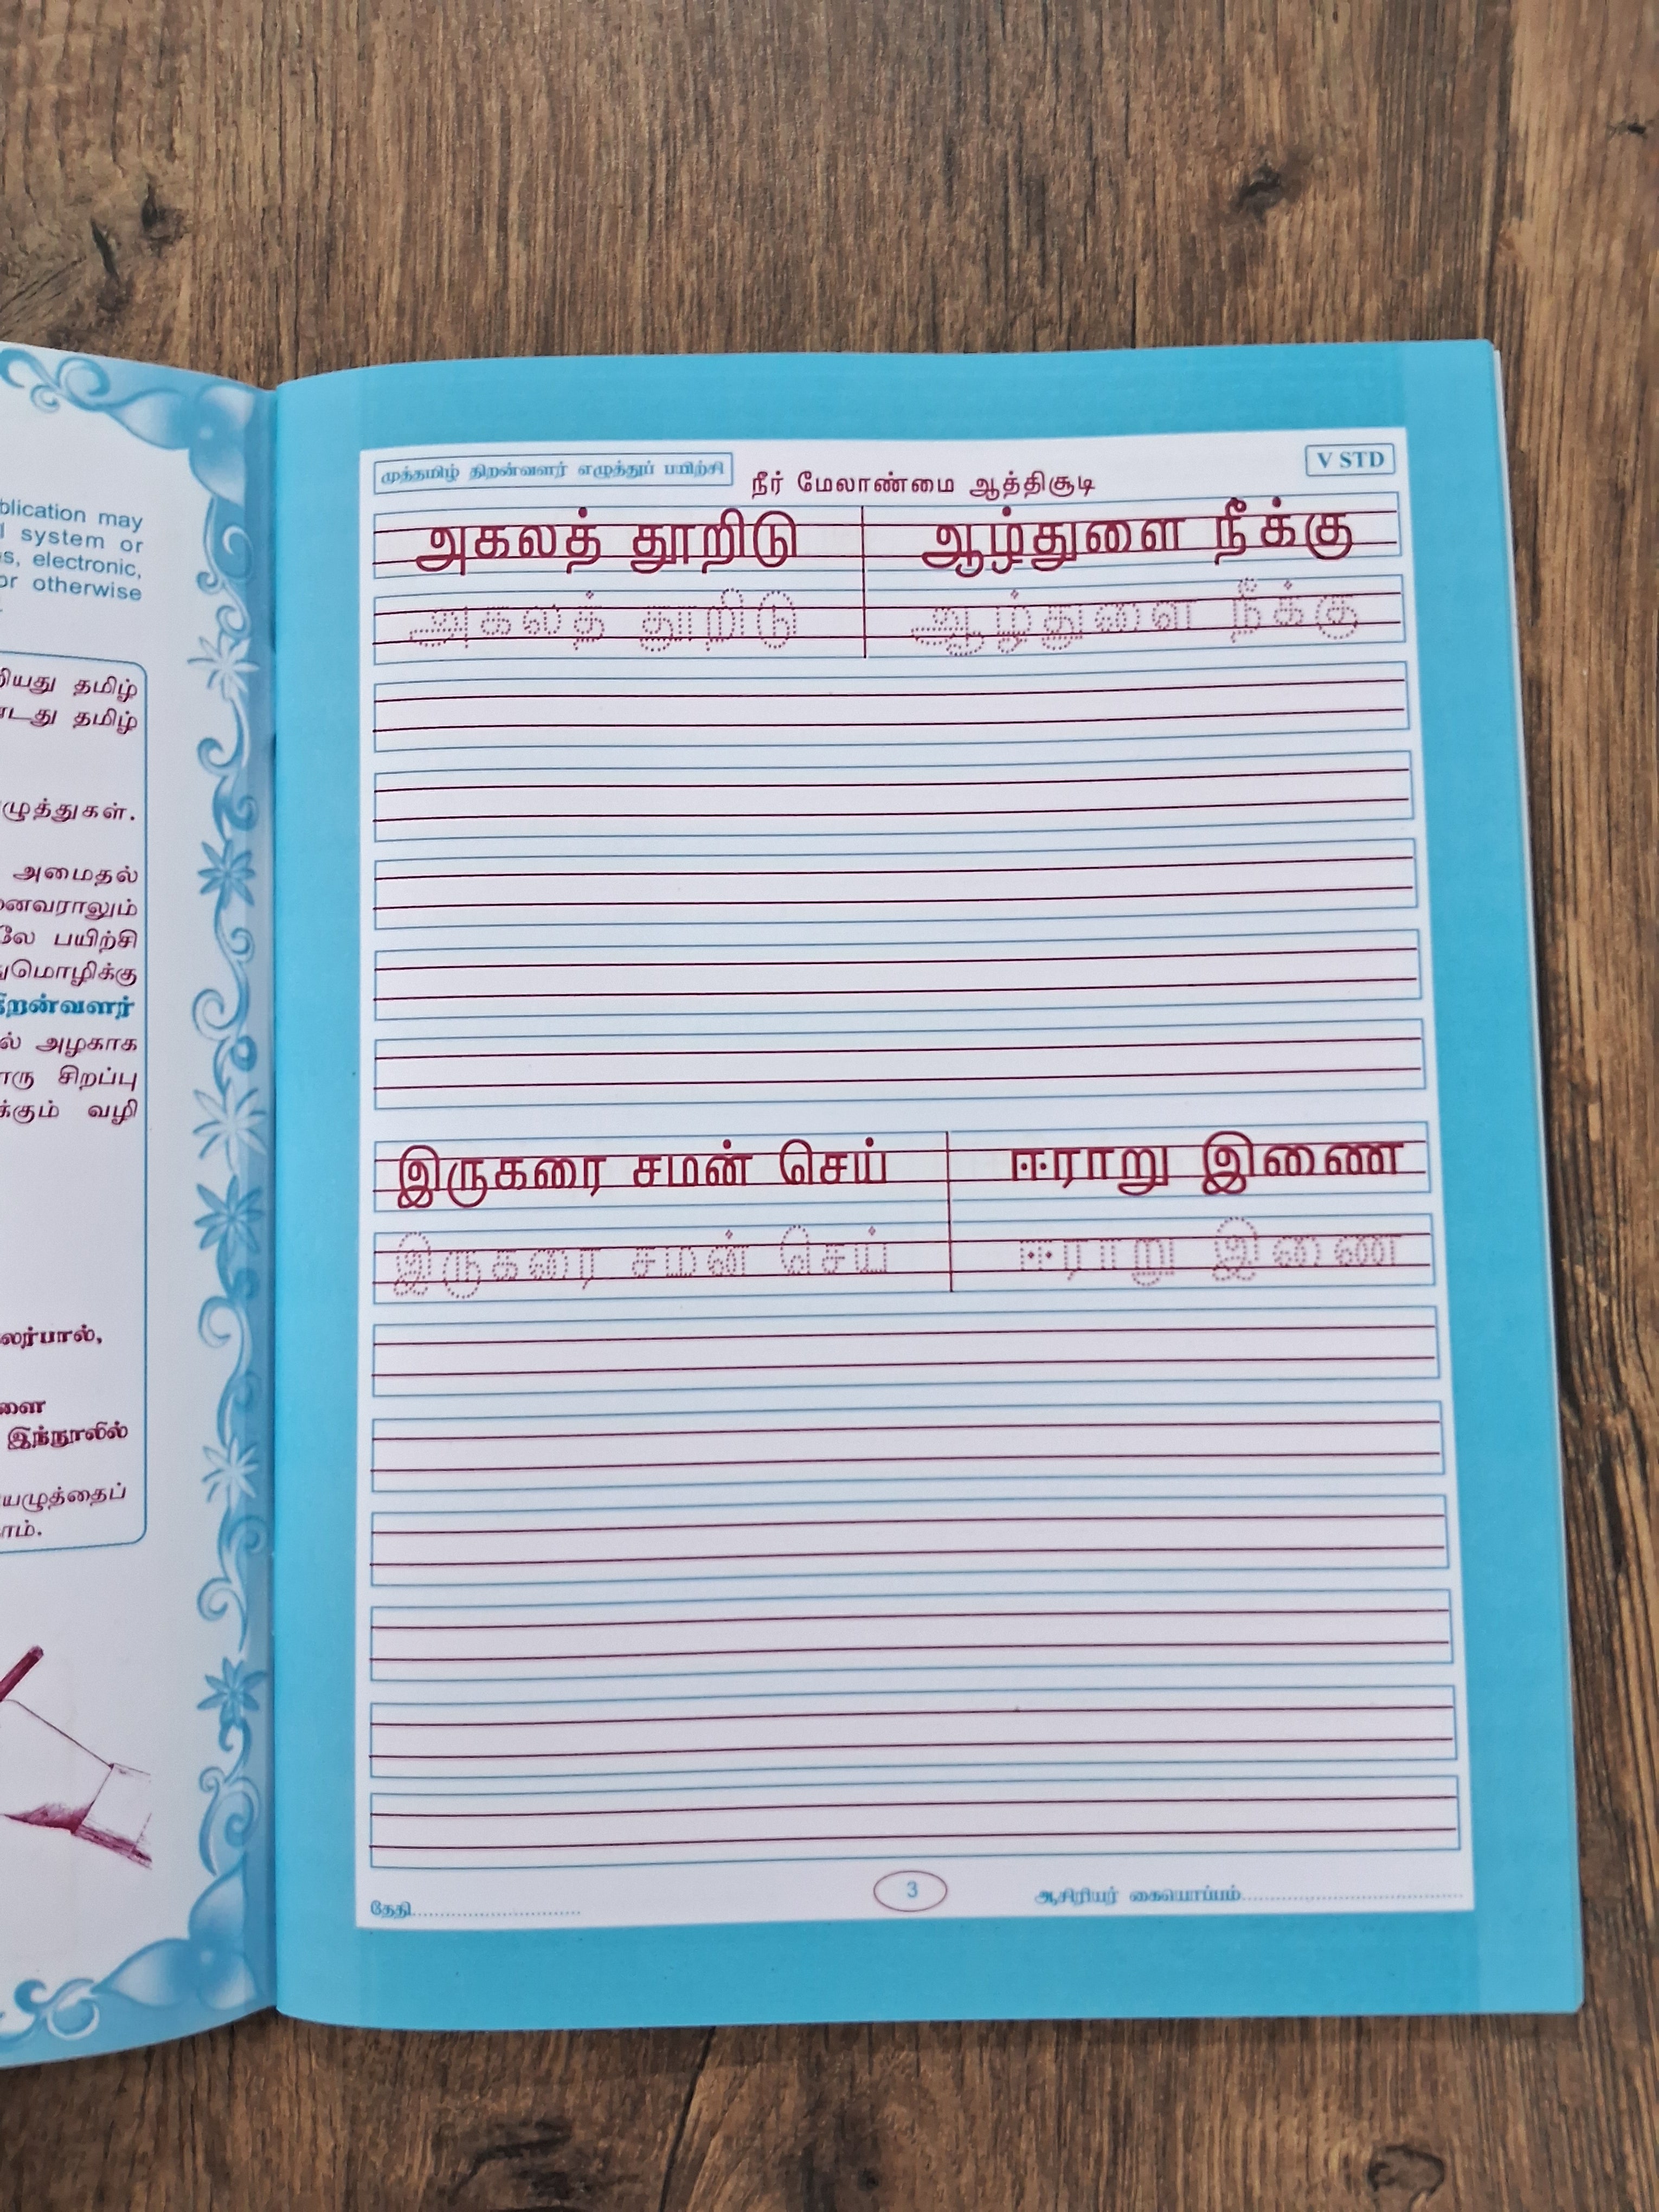 blication may
system or
electronic,
or otherwise
தமிழ்
தமிழ்
அமைதல்
பயிற்சி
அழகாக
சிறப்பு
வழி
இந்நூலில்
முத்தமிழ் திறன்வளர் எழுத்துப் பயிற்சி
நீர் மேலாண்மை ஆத்திசூடி
V STD
அகலத் தூறிடு ஆழ்துளை நீக்கு
அகலத் தூறிடு ஆழ்துளை நீக்கு
இருகரை சமன் செய் ஈராறு இணை
இருகரை சமன் செய் ஈராறு இணை
தேதி..............................
3
ஆசிரியர் கையொப்பம்........................................